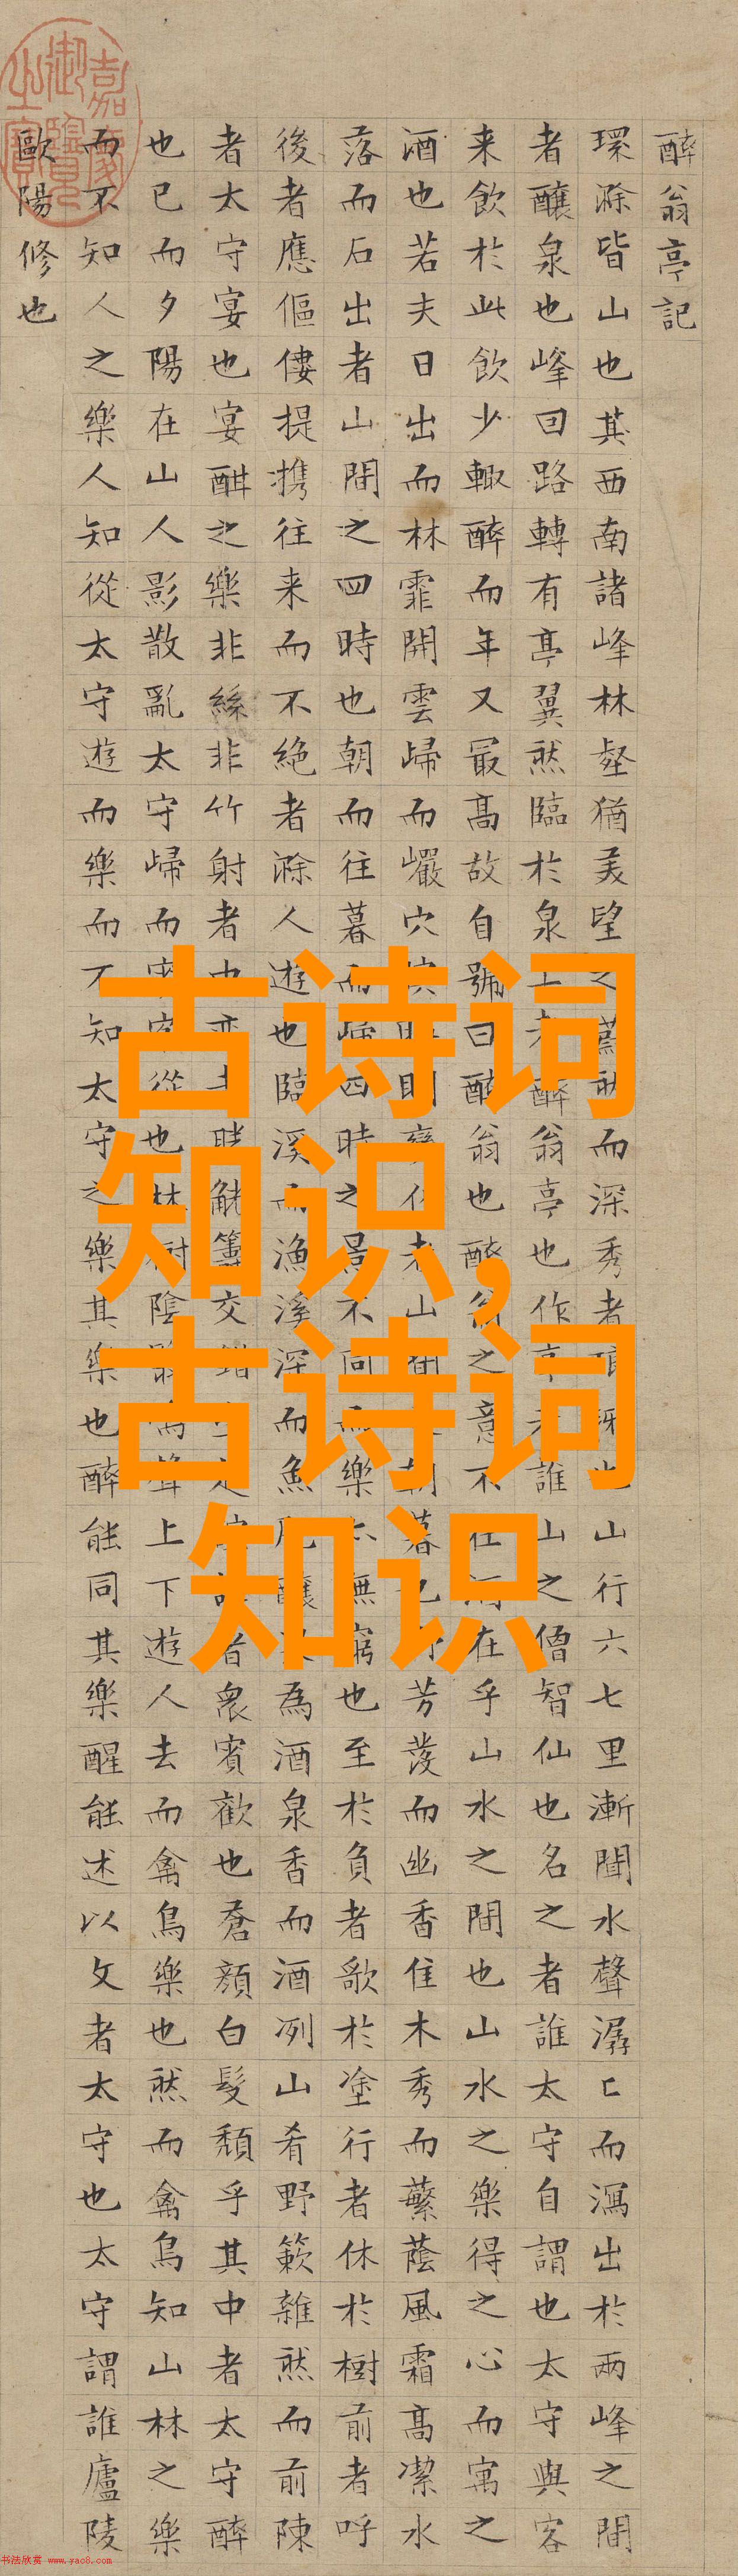 醉翁亭記
環滁皆山也其西南諸峰林壑猶美望之蔚然而深秀者琅琊也山行六七里漸聞水聲潺〻而瀉出於兩峰之間
者釀泉也峰回路轉有亭翼然臨於泉上者醉翁亭也作亭者誰山之僧智仙也名之者誰太守自謂也太守與客
来飲於此飲少輙醉而年又最高故自號曰醉翁也醉翁之意不在酒在乎山水之間也山水之樂得之心而寓之
酒也若夫日出而林霏開雲歸而巖穴暝晦明變化者山間朝暮也芳發而幽香佳木秀而蘩蔭風霜高潔水
落而石出者山間之四時也朝而往暮而歸四時之景不同而樂亦無窮也至於負者歌於塗行者休於樹前者呼
後者應傴僂提攜往来而不絶者滁人遊也臨溪而漁溪深而魚肥釀泉為酒泉香而酒冽山肴野簌雜然而前陳
者太守宴也宴酣之樂非絲非竹射者中弈者勝觥籌交錯起者衆賓歡也蒼顔白髮頹乎其中者太守醉
也已而夕陽在山人影散亂太守歸而賓客從也林樹陰翳鳴聲上下遊人去而禽鳥樂也然而禽鳥知山林之樂
而不知人之樂人知從太守遊而樂而不知太守之樂其樂也醉能同其樂醒能述以文者太守也太守謂誰廬陵
歐陽修也
古诗词
知识,
古诗词
知识
书法欣赏 www.yac8.com